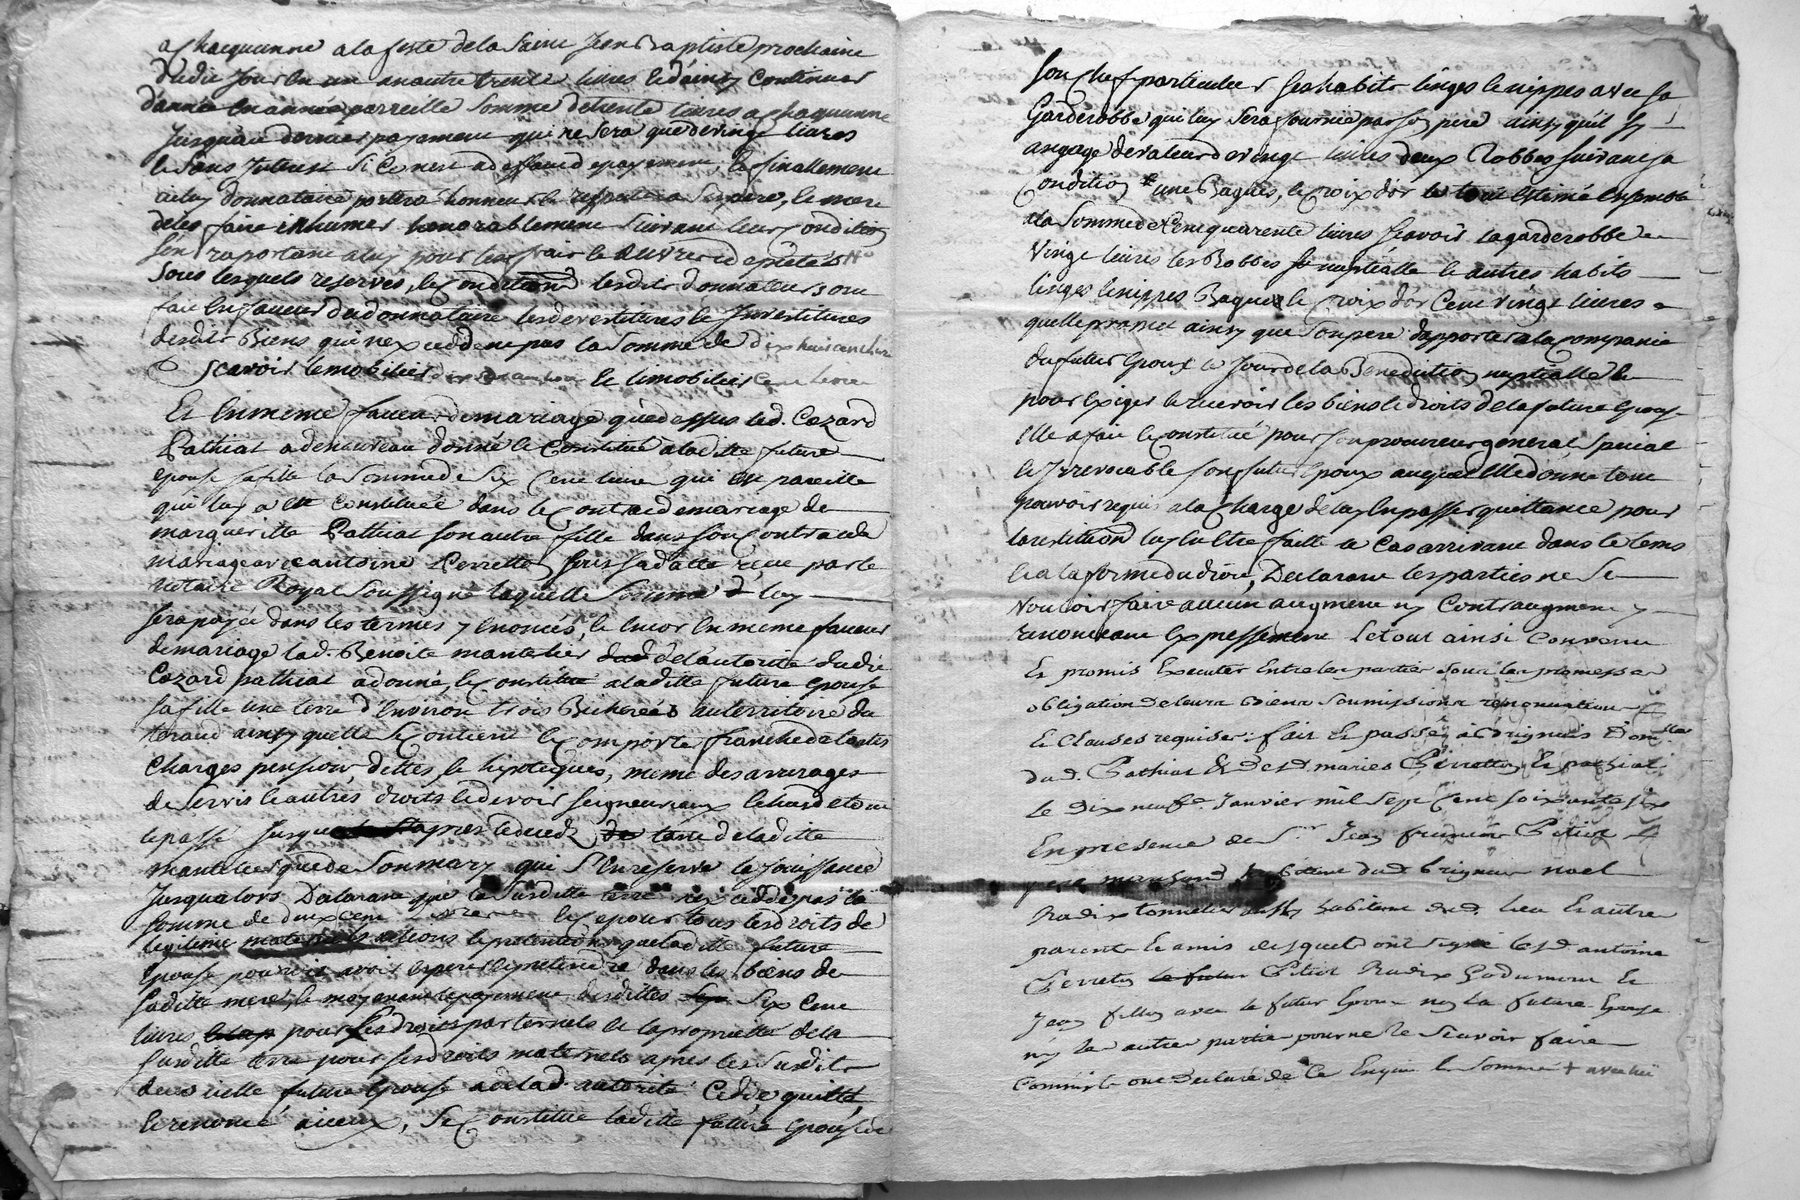 a chacquunne a la feste de la Saint Jean Baptiste prochaine
dudit Jour en un an autre trente livres et dainsy continuer
dannée en année parreille somme de trente livres a chaquunne
Jusquau dernier payement qui ne sera que de vingt livres
le sans Interest si ce nest a deffaud de payement, et finallement
ledit donnataire portera honneur et respect a ses pere, et mere
et les faire inhumer honorablement suivant leur condition
sous lesquels reserves, et conditions lesdits donnateurs ont
fait en faveur dudonnataire les devestitures et Investitures
desdits Biens qui nexceddent pas la somme de dix huit cent livres
scavoir le mobilier et limobilier cent livres
Et en meme faveur de mariage que dessus led. Cezard
Pathiat a de nouveau donné et constitué a laditte future
epouse sa fille la somme de six cent livres qui est pareille
qui luy a été constituée dans le contract de mariage de
margueritte Pathiat son autre fille dans son contract de
mariage avec antoine Perretton sous sa datte reçue par le
notaire Royal soussigné laquelle somme luy
sera payée dans les termes y enoncés, et encor en meme faveur
de mariage lad. Benoite mantelier de lautorité dudit
Cezard pathiat a donné, et constitué a laditte future epouse
sa fille une terre d'environ trois Bicherées au territoire du
ainsy quelle se contient et comporte franche de toutes
charges pension, dettes et hipoteques, meme des arrerages
de servis et autres droits et devoir seigneuriaux
le passé Jusque apres le deced de laditte
mantelier que de son mary qui s'en reserve la Jouissance
Jusqualors Declarant que la susditte terre nexcedde pas la
somme de deux cent livres et ce pour tous les droits de
legitime actions et pretentions que laditte future
Epouse pourroit avoir esperer et pretendre dans les biens de
saditte mere, et moyenant le payement desdittes six cent
livres pour ses droits paternels et la proprietté de la
susditte terre pour ses droits maternels apres les susdits
deced icelle future Epouse de lad. autorité cedde, quitte,
et renoncé a iceux, se constitue laditte future Epouse de
son chef particulier ses habits linges et nippes avec sa
Garderobbe qui luy sera fournie par son pere ainsy quil sy
angage de valeur de vingt livres deux Robbes suivant sa
condition * une Bagues, et croix dor le tout estimé ensemble
a la somme de Cent quarente livres scavoir la garderobbe
vingt livres les Robbes nuptialle et autres habits
linges et nippes Bagues et croix dor Cent vingt livres
quelle promet ainsy que son pere dapporter a la compagnie
du futur epoux le Jour de la Benediction nuptialle et
pour exiger et recevoir les biens et droits de la future Epouse
elle a fait et constitué pour son procureur general, special
et Irrevocable son futur epoux auquel elle donne tout
pouvoir requis a la charge de luy en passer quittance pour
la restitution luy en etre faitte le cas arrivant dans le tems
et a la forme du droit, Declarant les parties ne se
vouloir faire aucun augment ny contraugment y
renoncant expressement Le tout ainsi convenu
Et promis Executer Entre les parties sous les promesses
obligation de leurs biens soumissions renonciations
Et Clauses requises: fait Et passé à Brignais Domicile
dud. Pathiat Et desd. mariés Perretton Et pathiat
le dix neufe Janvier mil sept cent soixante six
En presence de Sr Jean
marchand dud. brignais noel
Radix tonnelier aussy habitant dud. lieu Et autres
parents Et amis desquels ont signé lesd. antoine
Perreton le futur Radix Gadumont Et
Jean avec le futur Epoux ny la future Epouse
ny les autres parties pour ne le scavoir faire
comme ils ont declaré de ce Enquis Et sommé +